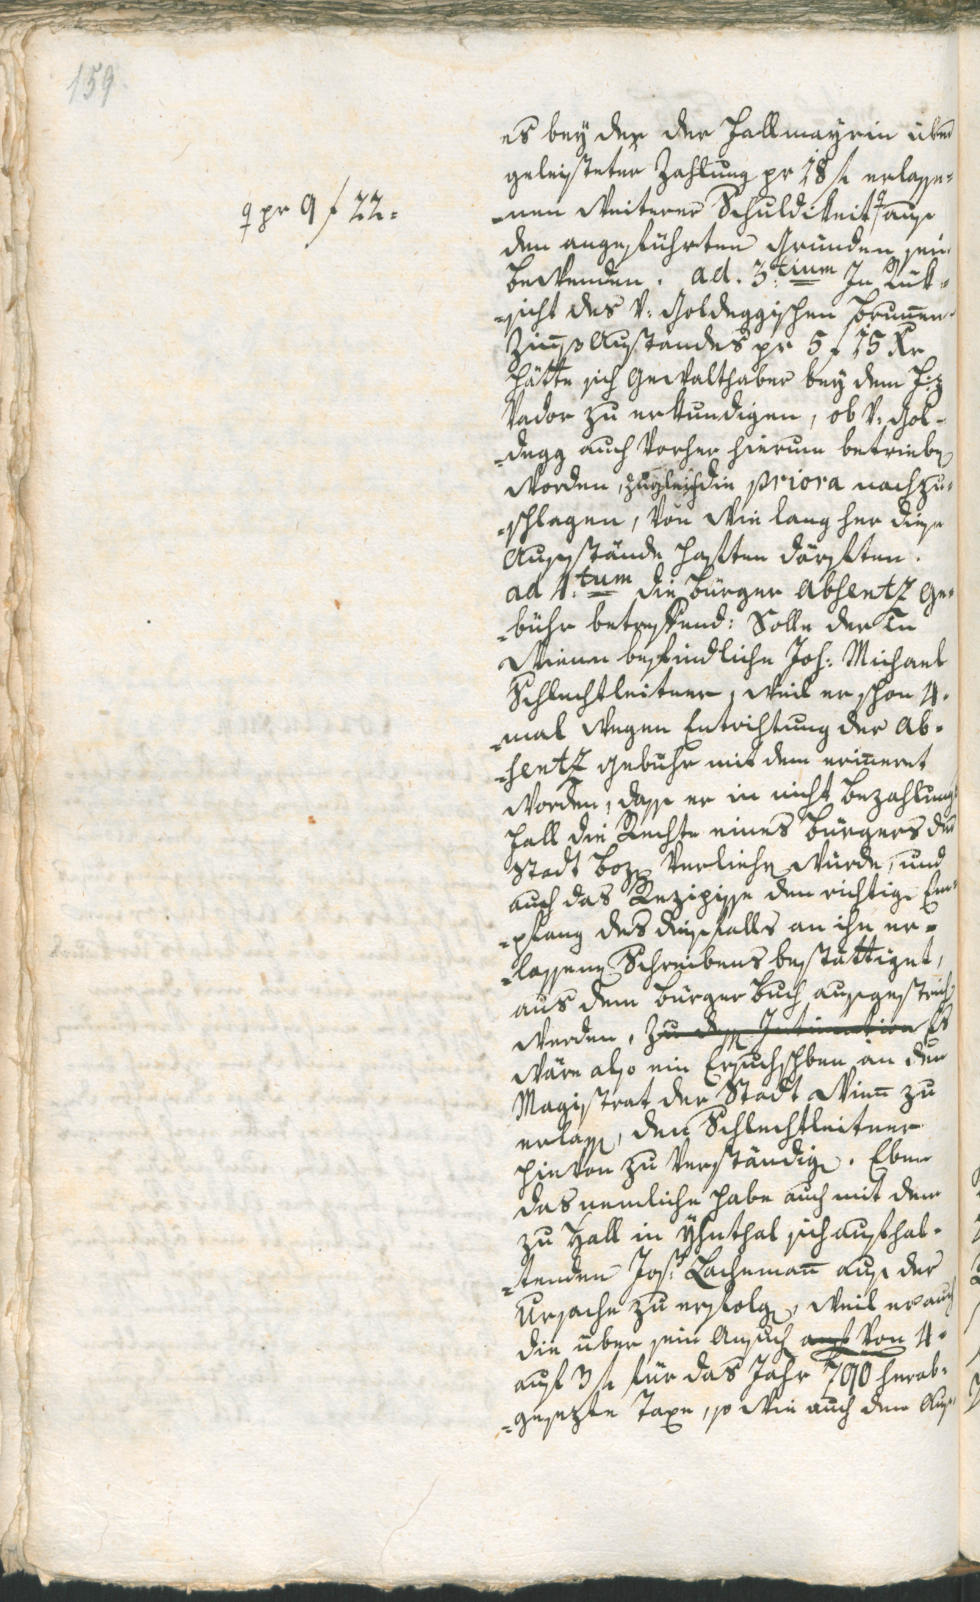 159
q pr 9 f 22=
es bey der der Hallmayrin über
geleisteter Zahlung pr 18 f erlasse=
=nen weiterer Schuldikeit q auß
den angeführten Gründen sein
Bewenden. ad. 3:tium In Rük=
=sicht des v: Goldeggischen Brunnen
Zinß Ausstandes pr 5 f 15 Kr
hätte sich Gewalthaber bey dem H:
Vador zu erkundigen, ob v: Gol=
=degg auch vorher hierum betrieben
worden, zugleich die priora nachzu=
=schlagen, von wie lang her diese
Ausstände haften dörften.
ad 4:tum die Bürger Absentz Ge=
=bühr betreffend: Solle der in
Wienn befindliche Joh: Michael
Schlechtleitner, weil er schon 4.
=mal wegen Entrichtung der Ab=
=sentz gebühr mit dem erinneret
worden, dass er in nicht Bezahlungs
fall die Rechte eines Bürgers der
Stadt Bozen verliehren würde, und
auch das Rezipisse den richtigen Em=
=pfang des diesfalls an ihn er=
=lassenen Schreibens bestättiget,
aus dem Bürger Buch ausgestrichen
werden. Zu dessen Intimation Es
wäre also ein Ersuchschben an den
Magistrat der Stadt Wienn zu
erlassen, den Schlechtleitner
hievon zu verständigen. Eben
das nemliche habe auch mit dem
zu Hall in Yhnthal sich aufhal=
=tenden Jos: Lachemann aus der
Ursache zu erfolgen, weil er auch
die über sein Ansuchen auf von 4.
auf 3 f für das Jahr 790 herab=
=gesezte Taxe, so wie auch den Aus=